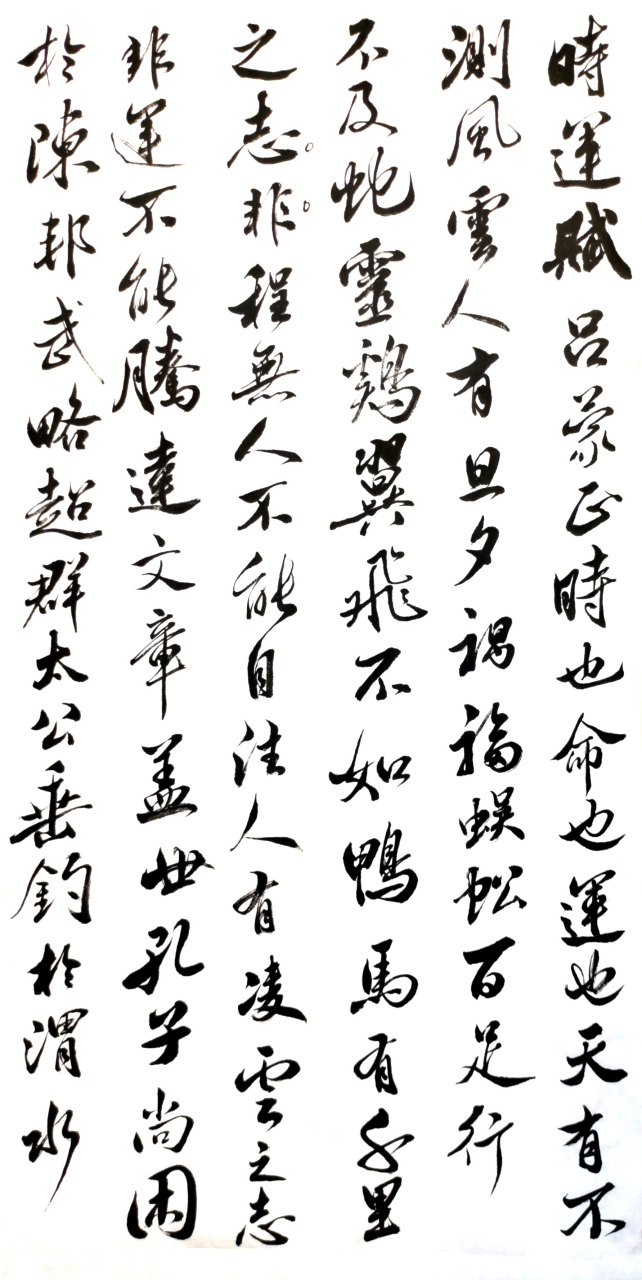 時運賦呂蒙正時也命也運也天有不
測風雲人有旦夕禍福蜈蚣百足行
不及蛇靈鷄翼飛不如鴨馬有千里
之志。非。程無人不能自往人有凌雲之志
非運不能騰達文章蓋世孔子尚困
於陳邦武略超群太公垂釣於渭水